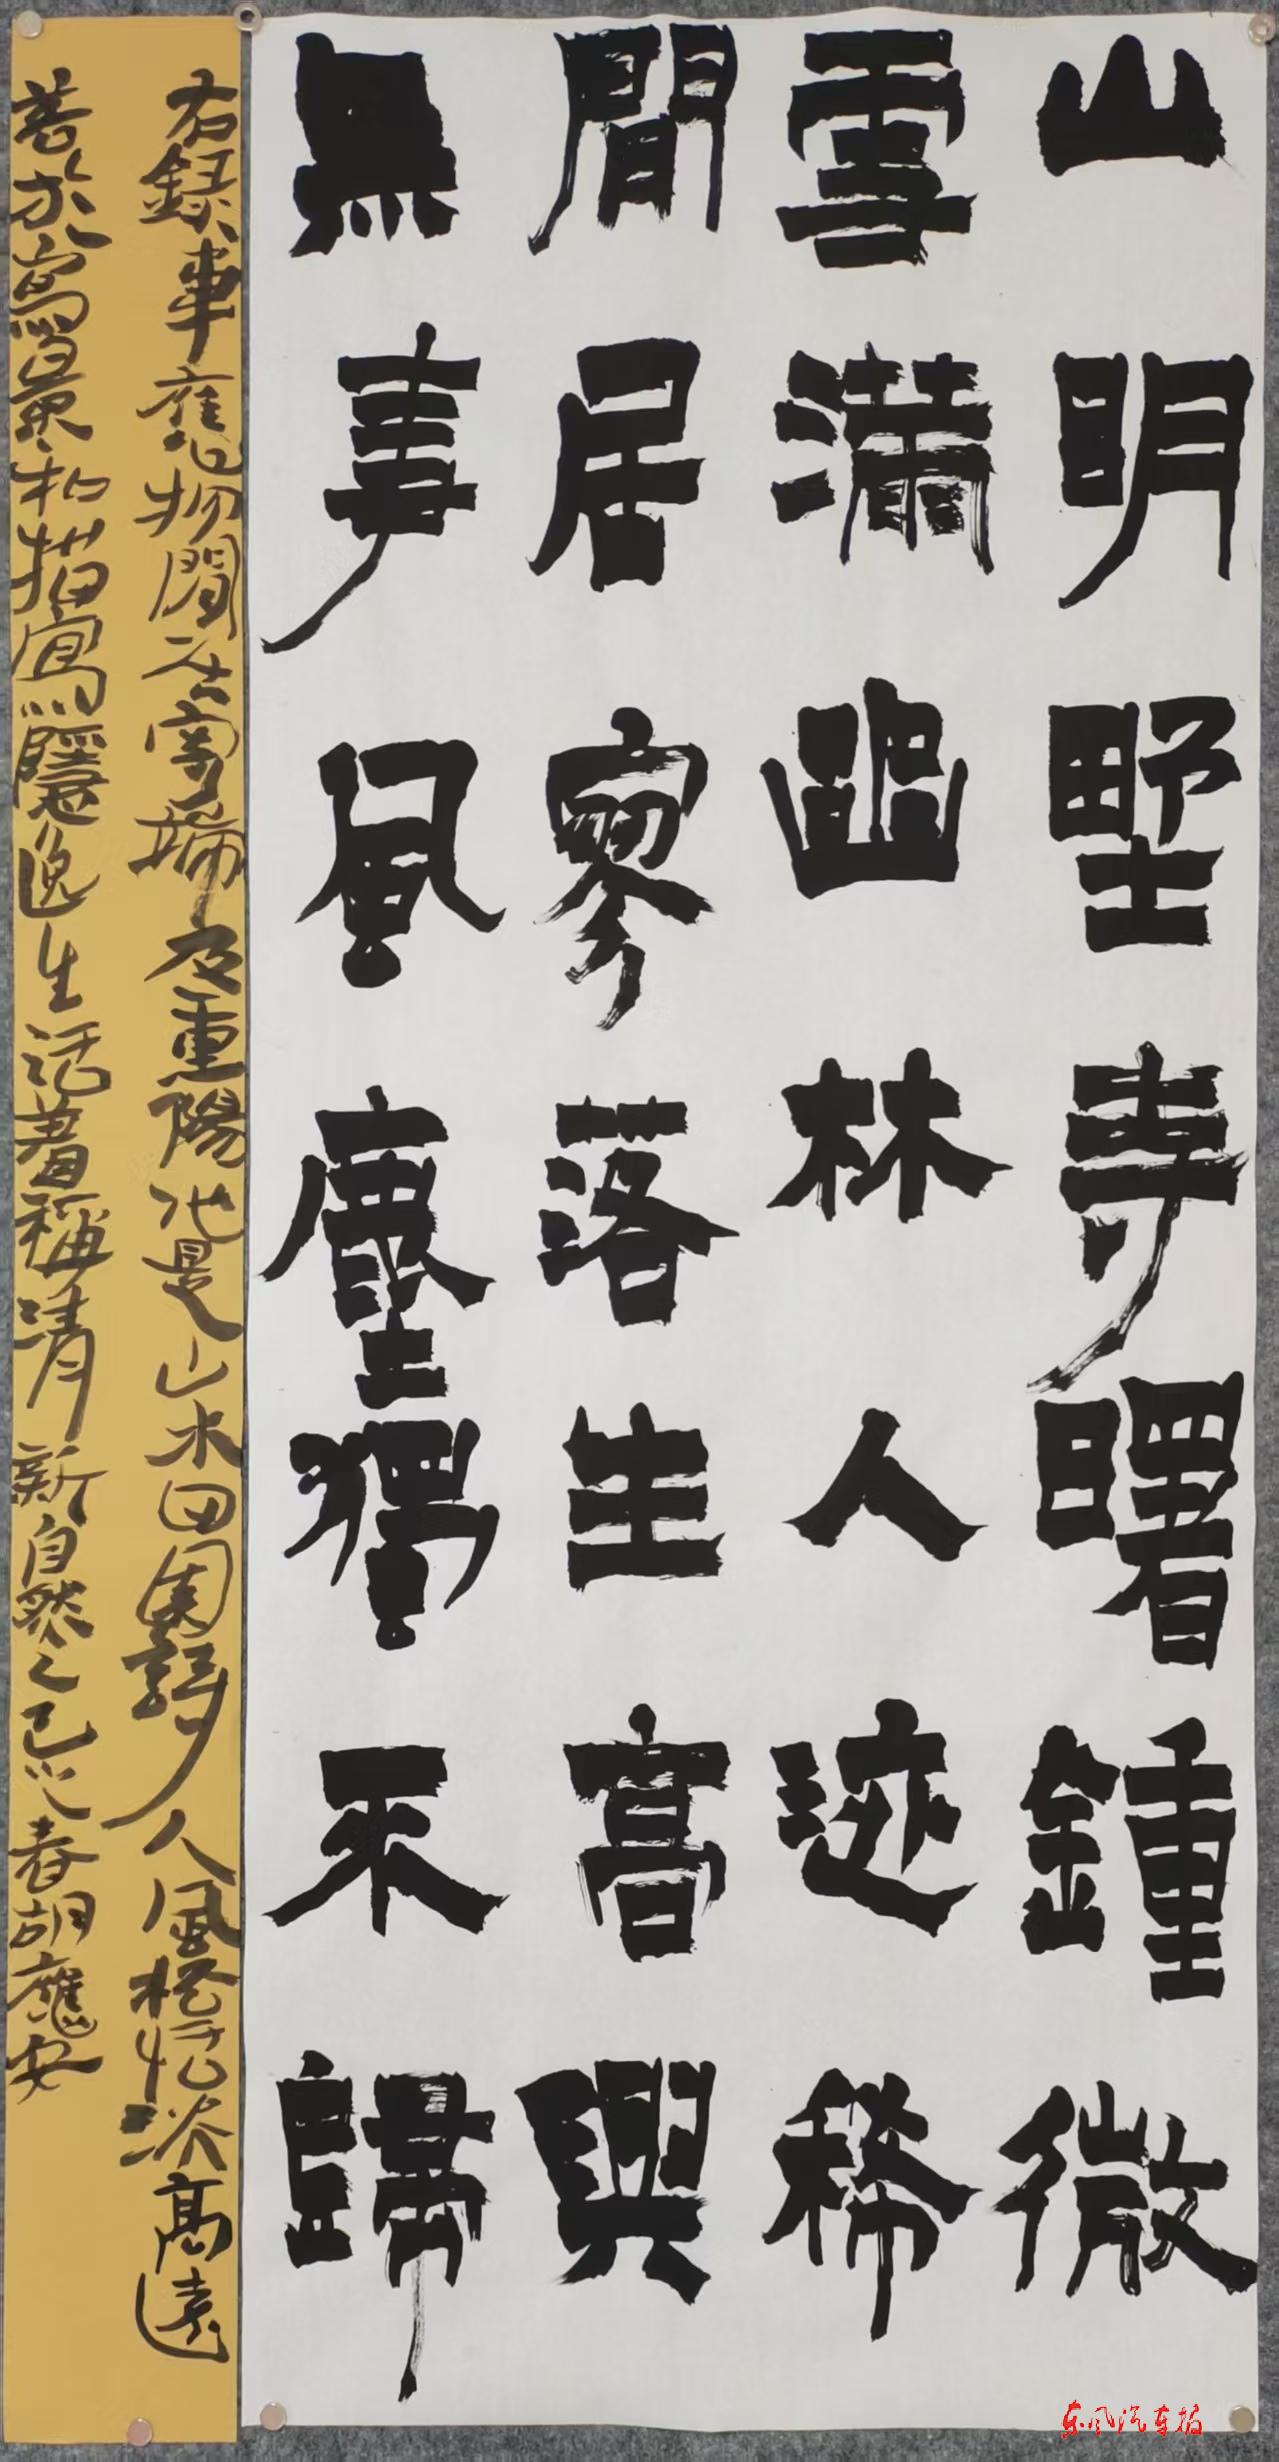 山明野寺曙鐘微
雪滿幽林人迹稀
閒居寥落生高興
無事風塵獨不歸
右録韋應物閒居寄端及重陽他是山水田園詩人風格恬淡高遠
善於寫景和描寫隱逸生活著稱清新自然乙巳之春胡應安
东风汽车报